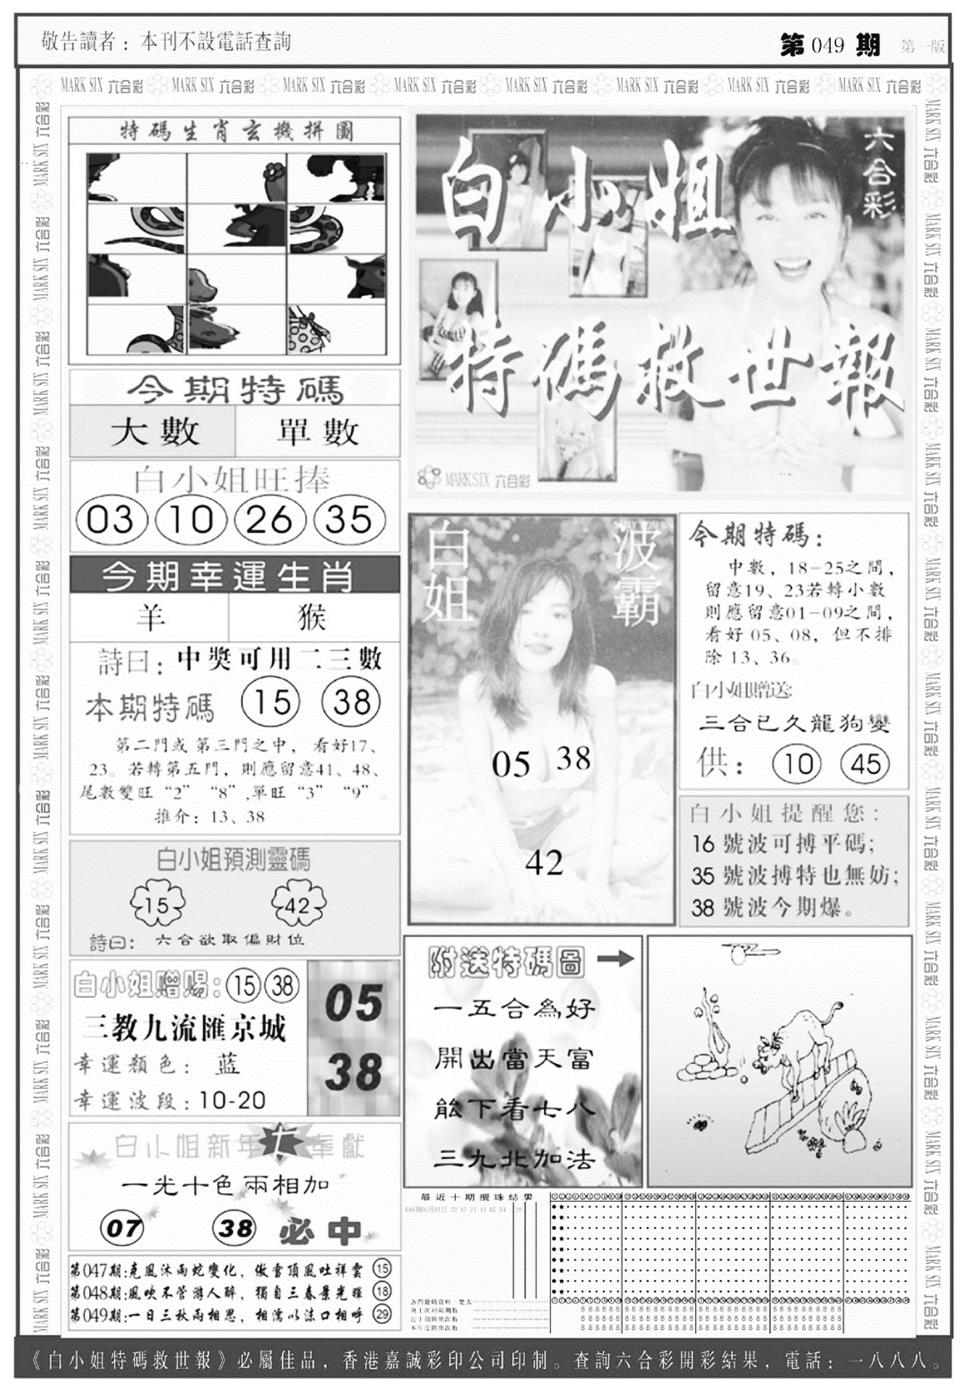 敬告讀者：本刊不設電話查詢
第 049 期 第一版
MARK SIX 六合彩 MARK SIX 六合彩 MARK SIX 六合彩 MARK SIX 六合彩 MARK SIX 六合彩 MARK SIX 六合彩 MARK SIX 六合彩 MARK SIX 六合彩
特碼生肖玄機拼圖
今期特碼
大數 單數
白小姐旺捧
03 10 26 35
今期幸運生肖
羊 猴
詩曰：中獎可用二三數
本期特碼 15 38
第二門或第三門之中，看好17、
23。若轉第五門，則應留意41、48、
尾數雙旺“2”“8”，單旺“3”“9”。
推介：13、38
白小姐預測靈碼
15 42
詩曰：六合欲取偏財位
白小姐贈賜：15 38
三教九流匯京城
幸運顏色：蓝
幸運波段：10-20
05
38
白小姐新年 奉獻
一光十色兩相加
07 38 必中
第047期：堯風沐雨蛇變化，傲雪頂風吐祥雲 15
第048期：風吹不管游人醉，獨自三春景光輝 18
第049期：一日三秋兩相思，相濡以沫口相呼 29
白小姐
六合彩
特碼救世報
MARK SIX 六合彩
白姐
波霸
05 38
42
今期特碼：
中數，18-25之間，
留意19、23若轉小數
則應留意01-09之間，
看好05、08，但不排
除13、36。
白小姐贈送：
三合已久龍狗變
供：10 45
白小姐提醒您：
16 號波可搏平碼；
35 號波搏特也無妨；
38 號波今期爆。
附送特碼圖
一五合為好
開出當天富
能下看七八
三九北加法
最近十期攪珠結果
《白小姐特碼救世報》必屬佳品，香港嘉誠彩印公司印制。查詢六合彩開彩結果，電話：一八八八。